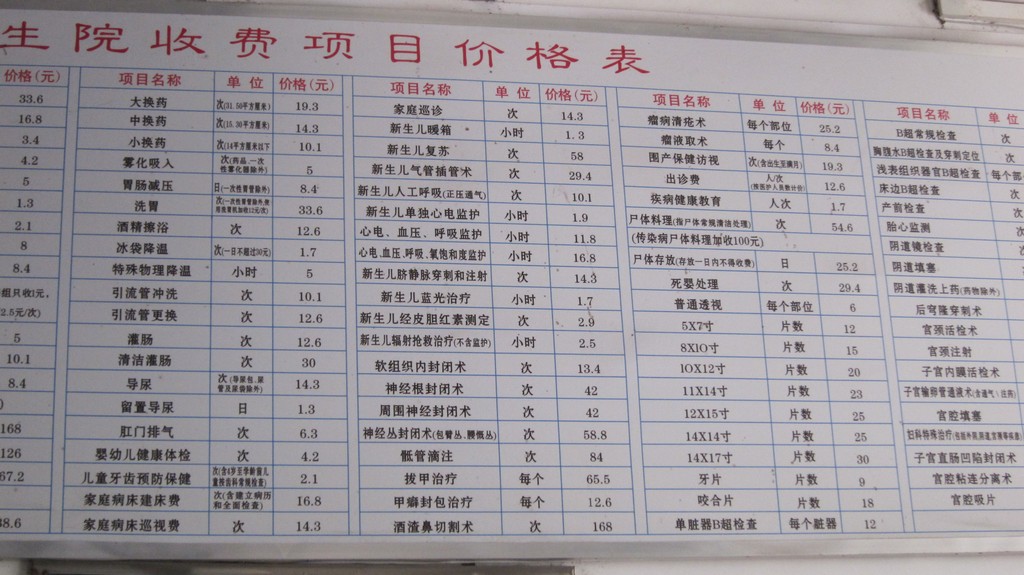 生院收费项目价格表
价格(元)
33.6
16.8
3.4
4.2
5
1.3
2.1
8
8.4
组只收1元,
2.5元/次)
5
10.1
8.4
168
126
67.2
38.6
项目名称 单位 价格(元)
大换药 次(31.50平方厘米) 19.3
中换药 次(15.30平方厘米) 14.3
小换药 次(14平方厘米以下 10.1
雾化吸入 次(药品、一次性雾化器除外) 5
胃肠减压 日(一次性胃管除外) 8.4
洗胃 33.6
酒精擦浴 次 12.6
冰袋降温 次(一日不超过50元) 1.7
特殊物理降温 小时 5
引流管冲洗 次 10.1
引流管更换 次 12.6
灌肠 次 12.6
清洁灌肠 次 30
导尿 次(导尿包、尿管及尿袋除外) 14.3
留置导尿 日 1.3
肛门排气 次 6.3
婴幼儿健康体检 次 4.2
儿童牙齿预防保健 次(含4岁至学龄前儿童按齿科常规检查) 2.1
家庭病床建床费 次(含建立病历和全面检查) 16.8
家庭病床巡视费 次 14.3
项目名称 单位 价格(元)
家庭巡诊 次 14.3
新生儿暖箱 小时 1.3
新生儿复苏 次 58
新生儿气管插管术 次 29.4
新生儿人工呼吸(正压通气) 次 10.1
新生儿单独心电监护 小时 1.9
心电、血压、呼吸监护 小时 11.8
心电、血压、呼吸、氧饱和度监护 小时 16.8
新生儿脐静脉穿刺和注射 次 14.3
新生儿蓝光治疗 小时 1.7
新生儿经皮胆红素测定 次 2.9
新生儿辐射抢救治疗(不含监护) 小时 2.5
软组织内封闭术 次 13.4
神经根封闭术 次 42
周围神经封闭术 次 42
神经丛封闭术(包臂丛、腰骶丛) 次 58.8
骶管滴注 次 84
拔甲治疗 每个 65.5
甲癣封包治疗 每个 12.6
酒渣鼻切割术 次 168
项目名称 单位 价格(元)
瘤病清疮术 每个部位 25.2
瘤液取术 每个 8.4
围产保健访视 次(含出生至满月) 19.3
出诊费 人/次(按医护人员数计价) 12.6
疾病健康教育 人次 1.7
尸体料理(指尸体常规清洁处理) 次 54.6
(传染病尸体料理加收100元)
尸体存放(存放一日内不得收费) 日 25.2
死婴处理 次 29.4
普通透视 每个部位 6
5X7寸 片数 12
8X1O寸 片数 15
1OX12寸 片数 20
11X14寸 片数 23
12X15寸 片数 25
14X14寸 片数 25
14X17寸 片数 30
牙片 片数 9
咬合片 片数 18
单脏器B超检查 每个脏器 12
项目名称 单位
B超常规检查 次
胸腹水B超检查及穿刺定位 次
浅表组织器官B超检查 每个部
床边B超检查 次
产前检查 次
胎心监测 次
阴道镜检查 次
阴道填塞 次
阴道灌洗上药(药物除外) 次
后穹隆穿刺术 次
宫颈活检术 次
宫颈注射 次
宫颈内膜活检术 次
子宫输卵管通液术(含通气、注药) 次
宫腔填塞 次
子宫直肠凹陷封闭术 次
宫腔粘连分离术 次
宫腔吸片 次